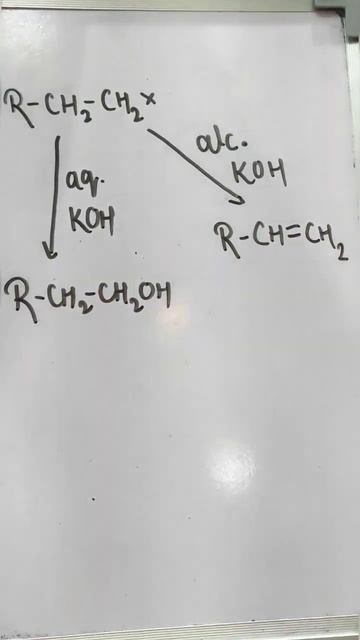 R-CH₂-CH₂x
alc.
KOH
aq.
KOH
R-CH=CH₂
R-CH₂-CH₂OH